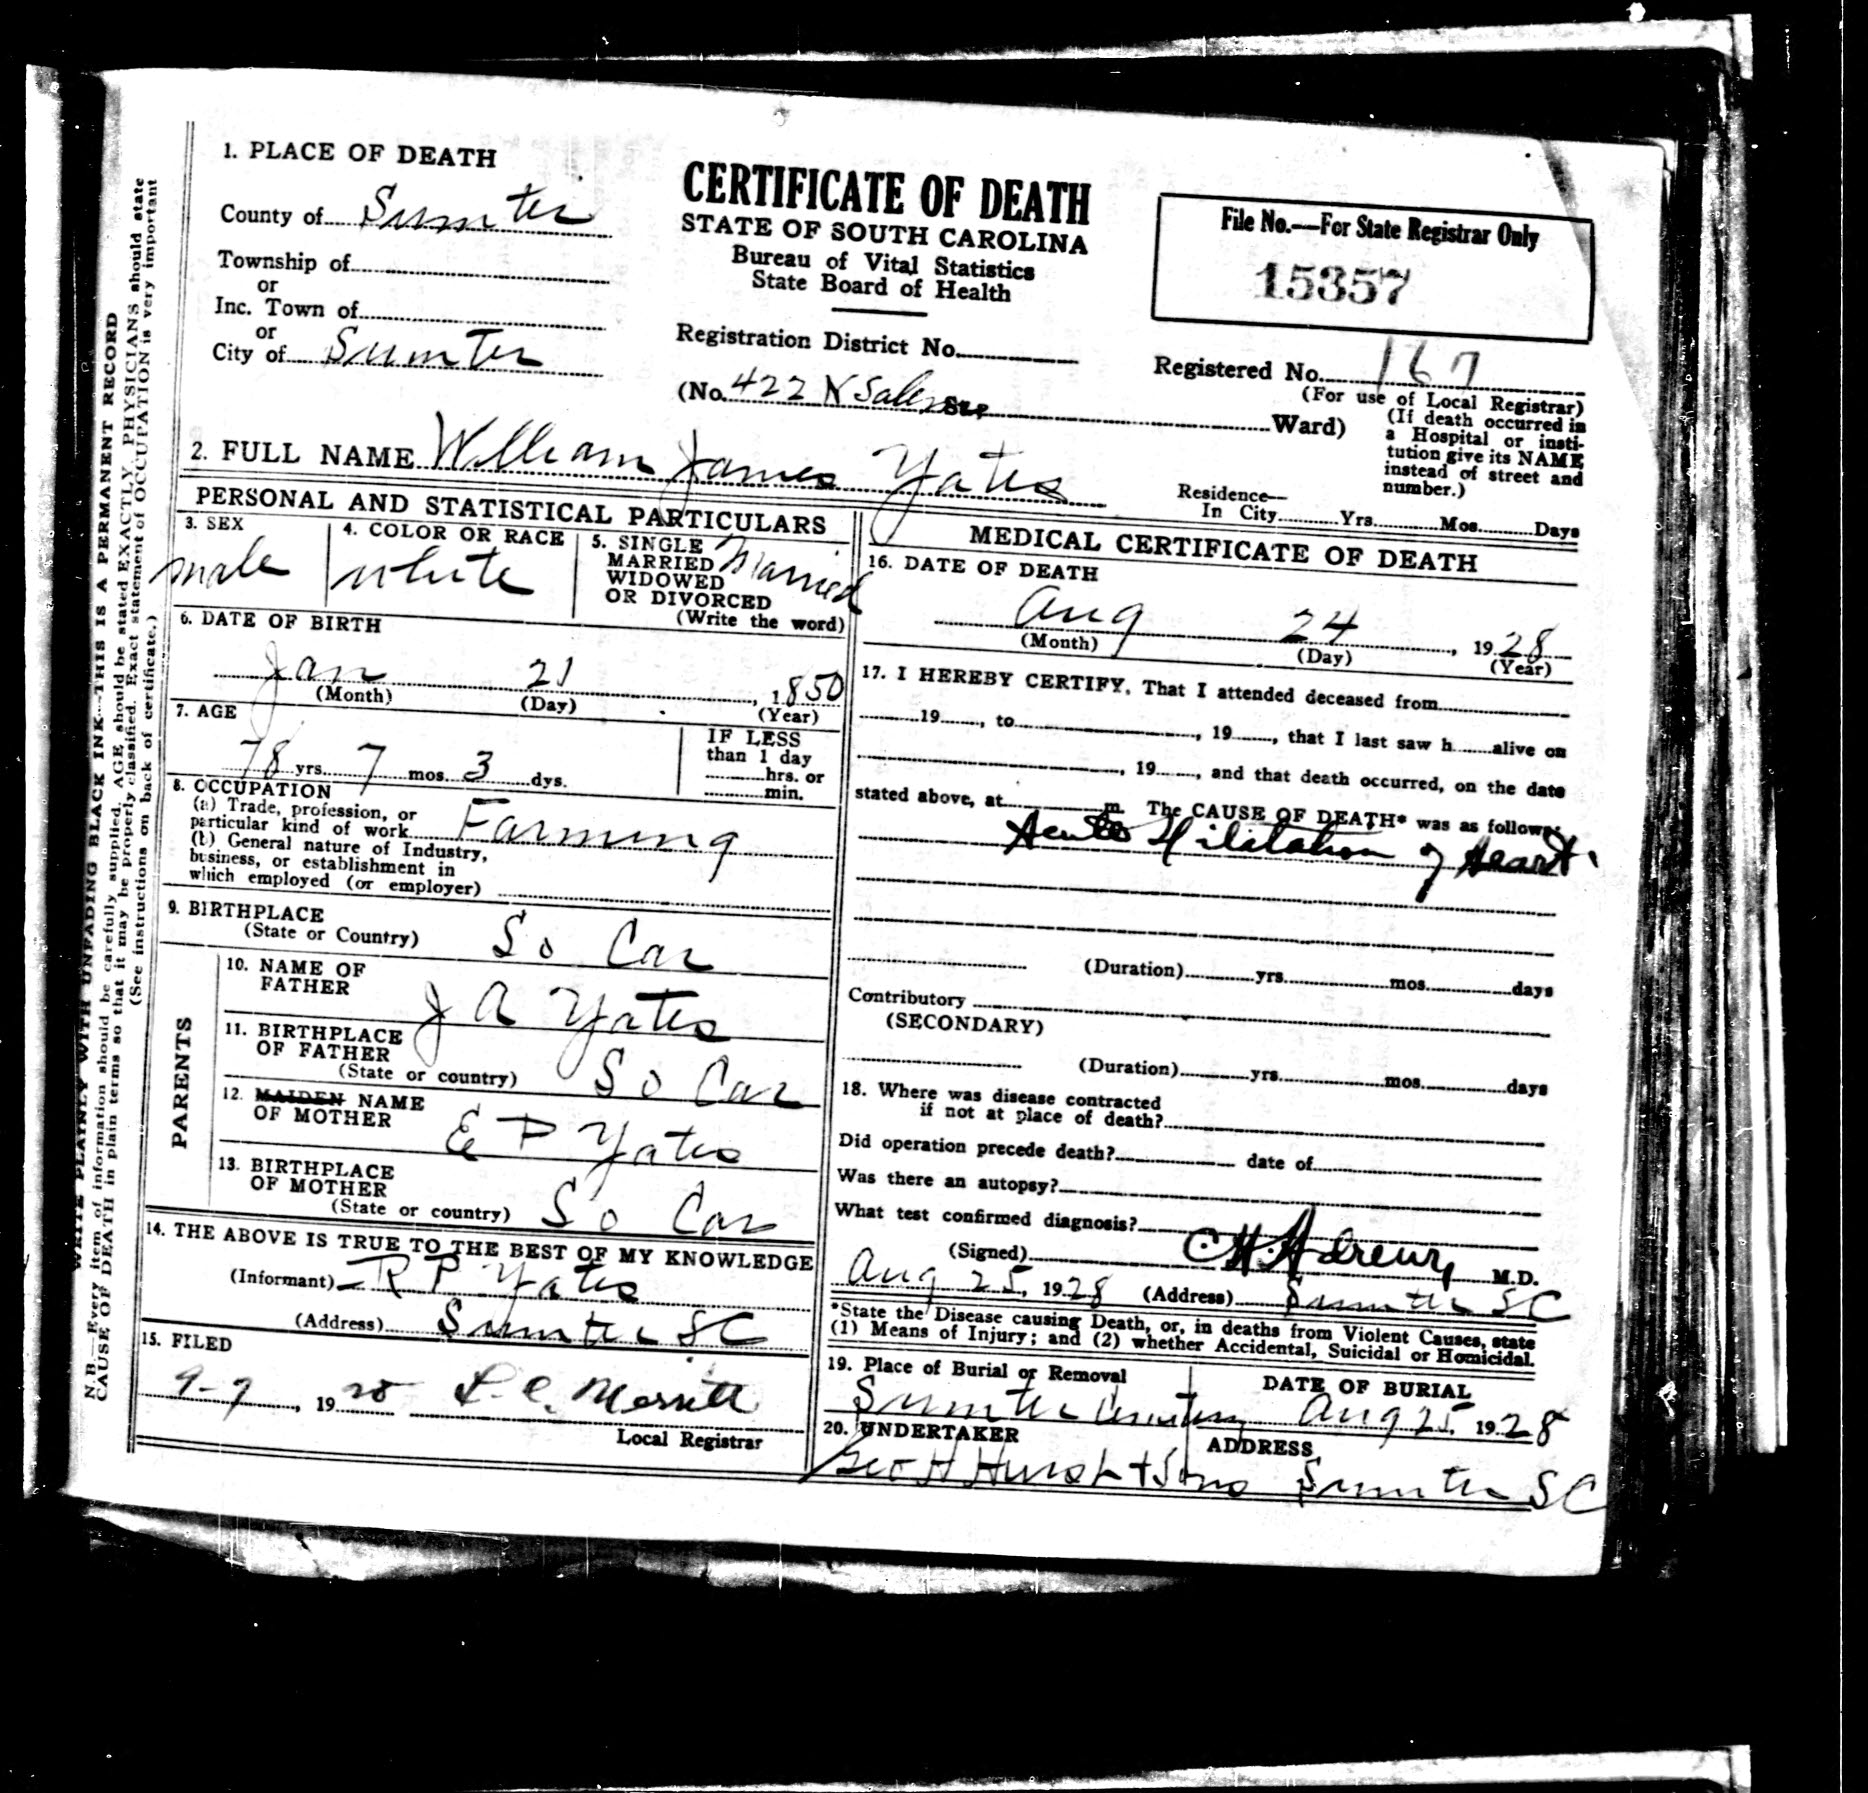 1. PLACE OF DEATH
County of Sumter
Township of
or
Inc. Town of
or
City of Sumter
CERTIFICATE OF DEATH
STATE OF SOUTH CAROLINA
Bureau of Vital Statistics
State Board of Health
Registration District No.
(No. 422 N Salem St.; Ward)
File No.—For State Registrar Only
15357
Registered No. 167
(For use of Local Registrar)
(If death occurred in
a Hospital or insti-
tution give its NAME
instead of street and
number.)
2. FULL NAME William James Yates
Residence—
In City Yrs. Mos. Days
PERSONAL AND STATISTICAL PARTICULARS
3. SEX
male
4. COLOR OR RACE
white
5. SINGLE
MARRIED
WIDOWED
OR DIVORCED
(Write the word)
Married
6. DATE OF BIRTH
Jan 21, 1850
(Month) (Day) (Year)
7. AGE
78 yrs. 7 mos. 3 dys.
IF LESS
than 1 day
hrs. or
min.
8. OCCUPATION
(a) Trade, profession, or
particular kind of work Farming
(b) General nature of Industry,
business, or establishment in
which employed (or employer)
9. BIRTHPLACE
(State or Country) So Car
PARENTS
10. NAME OF
FATHER
J A Yates
11. BIRTHPLACE
OF FATHER
(State or country) So Car
12. MAIDEN NAME
OF MOTHER
E P Yates
13. BIRTHPLACE
OF MOTHER
(State or country) So Car
14. THE ABOVE IS TRUE TO THE BEST OF MY KNOWLEDGE
(Informant) R P Yates
(Address) Sumter SC
15. FILED
9-7, 19 28 L. C. Merritt
Local Registrar
MEDICAL CERTIFICATE OF DEATH
16. DATE OF DEATH
Aug 24, 1928
(Month) (Day) (Year)
17. I HEREBY CERTIFY, That I attended deceased from
19, to, 19, that I last saw h alive on
, 19, and that death occurred, on the date
stated above, at m. The CAUSE OF DEATH* was as follows:
Acute Dilitation of Heart.
(Duration) yrs. mos. days
Contributory
(SECONDARY)
(Duration) yrs. mos. days
18. Where was disease contracted
if not at place of death?
Did operation precede death? date of
Was there an autopsy?
What test confirmed diagnosis?
(Signed) C. H. Andrews, M.D.
Aug 25, 1928 (Address) Sumter SC
*State the Disease causing Death, or, in deaths from Violent Causes, state
(1) Means of Injury; and (2) whether Accidental, Suicidal or Homicidal.
19. Place of Burial or Removal
Sumter Cemetery
DATE OF BURIAL
Aug 25, 1928
20. UNDERTAKER
Geo H Hurst + Sons
ADDRESS
Sumter SC
WRITE PLAINLY WITH UNFADING BLACK INK—THIS IS A PERMANENT RECORD
N.B.—Every item of information should be carefully supplied. AGE should be stated EXACTLY. PHYSICIANS should state
CAUSE OF DEATH in plain terms so that it may be properly classified. Exact statement of OCCUPATION is very important
(See instructions on back of certificate.)